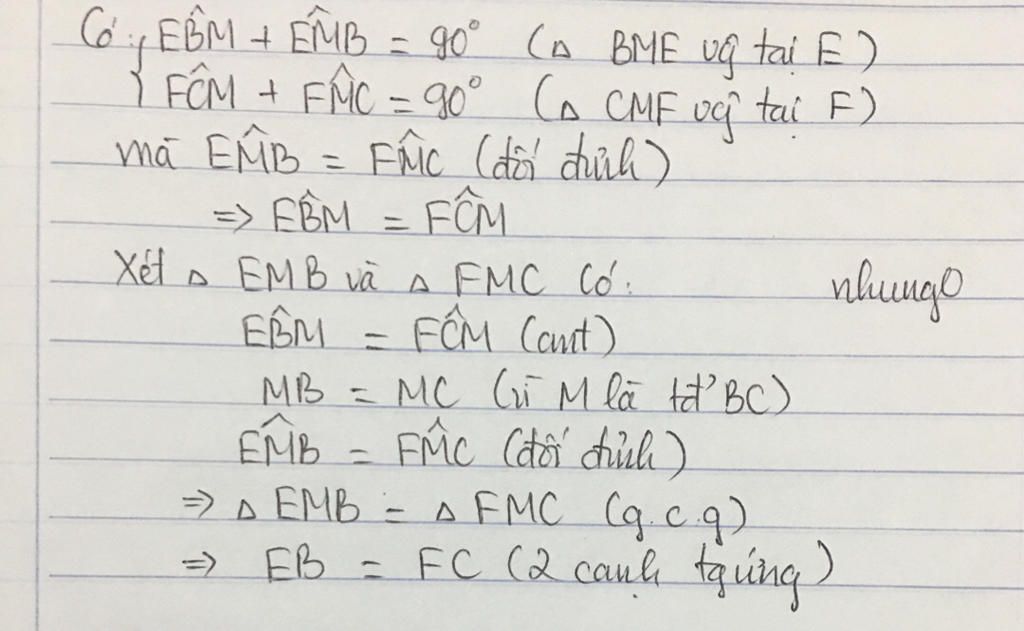 Có: { EB̂M + EM̂B = 90° (△ BME vg̃ tại E)
FĈM + FM̂C = 90° (△ CMF vg̃ tại F)
mà EM̂B = FM̂C (đối đỉnh)
=> EB̂M = FĈM
Xét △ EMB và △ FMC có:
nhung0
EB̂M = FĈM (cmt)
MB = MC (vì M là tđ' BC)
EM̂B = FM̂C (đối đỉnh)
=> △ EMB = △ FMC (g.c.g)
=> EB = FC (2 cạnh tg ứng)